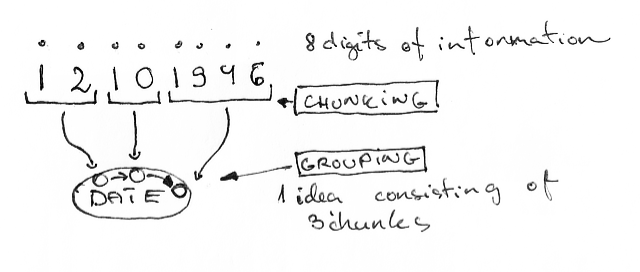 8 digits of information
12 10 1946
CHUNKING
GROUPING
DATE
1 idea consisting of
3 chunks